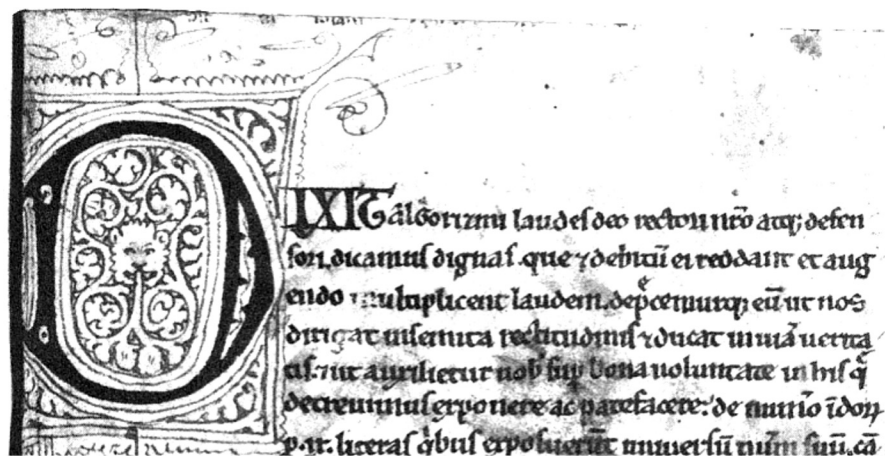 DIXIT algorizmi laudes deo rectori nr̃o atq; defen
sori dicamus dignas. que ⁊ debitũ ei reddant et aug
endo multiplicent laudem. dep̃cemurq; eũ ut nos
dirigat in semita rectitudinis ⁊ ducat in uiã uerita
tis. ⁊ ut auxilietur nob̃ sup bona uoluntate in his q̃
decreuimus exponere ac patefacere: de num̃o ĩdoꝝ
p .ix. literas q̃bus exposuerũt uniuersũ num̃ suũ. cã